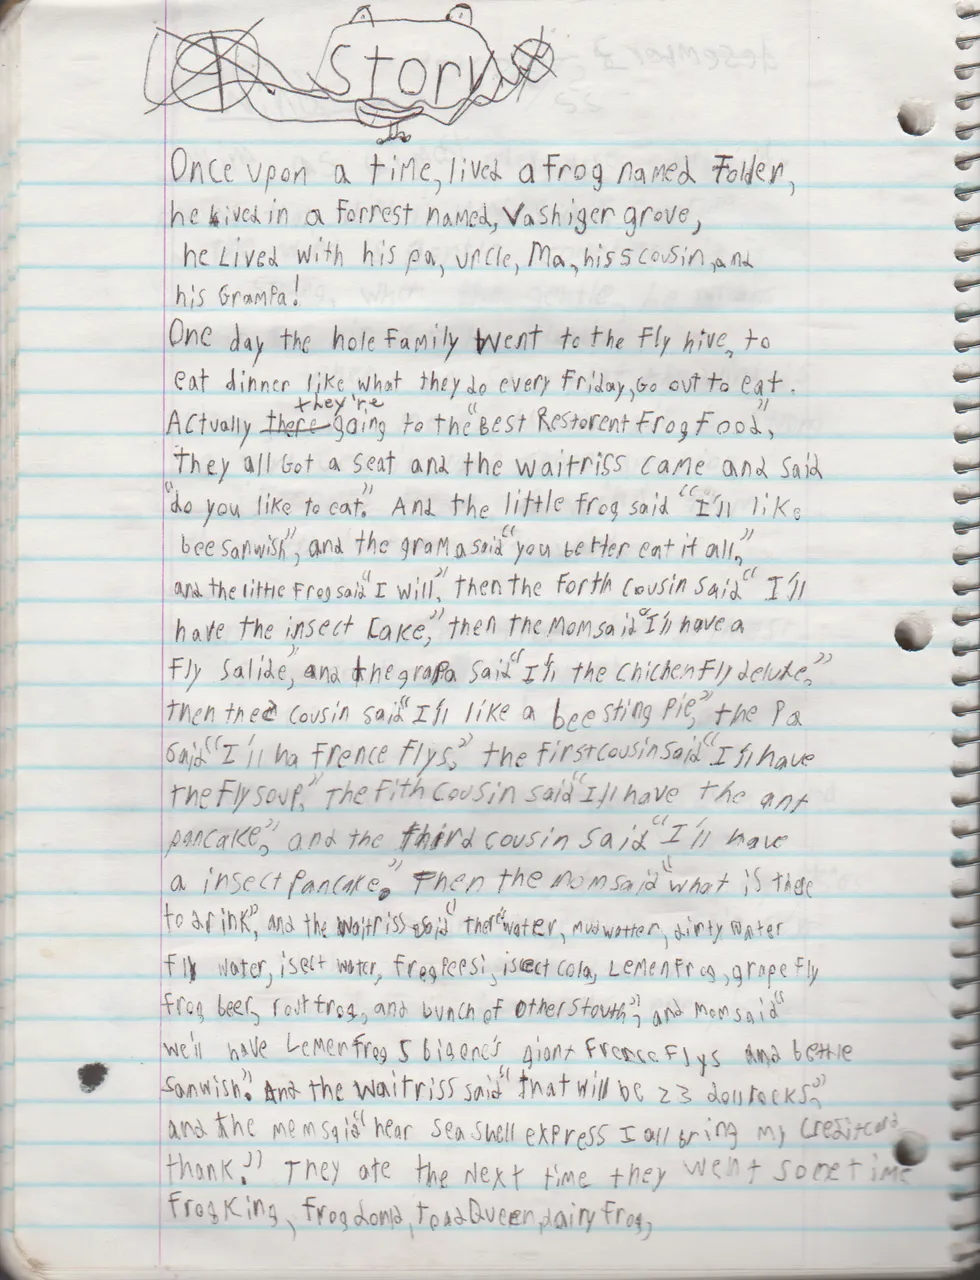 Story
Once upon a time, lived a frog named Folder,
he lived in a Forrest named, Vashiger grove,
he Lived with his pa, uncle, Ma, his 5 cousin, and
his Grampa!
One day the hole Family Went to the Fly hive, to
eat dinner like what they do every Friday, Go out to eat.
they're
Actually there going to the "Best Restorent Frog Food",
They all Got a seat and the waitriss came and said
"do you like to eat". And the little frog said "I'll like
bee sanwish", and the grama said "you better eat it all,"
and the little Frog said "I will", then the Forth cousin said "I'll
have the insect Cake," then the Mom said "I'll have a
Fly Salide", and the grapa said "I'll the ChichenFly deluxe,"
then the cousin said "I'll like a bee sting Pie," the Pa
said "I'll ha Frence Flys," the First cousin said "I'll have
the Fly soup," The Fith Cousin said "I'll have the ant
pancake", and the third cousin said "I'll have
a insect Pancake." Then the mom said "what is there
to drink", and the waitriss said "there's water, mud watter, dirty water
Fly water, isect water, Frog Pepsi, isect cola, Lemen frog, grape fly
frog beer, rout frog, and bunch of other stouth", and mom said "
we'll have Lemen frog 5 big one's giant Frence Flys and bettle
sanwish". And the waitriss said "that will be 23 dollrocks",
and the mem said "hear sea shell express I all bring my creditcard
thank." They ate the Next time they went sometime
Frog King, frog donld, toad Queen, dairy Frog,